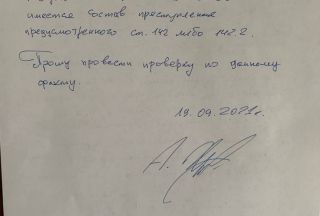 имеется состав преступления
предусмотренного ст. 142 либо 142.2.
Прошу провести проверку по данному
факту.
19.09.2021г.